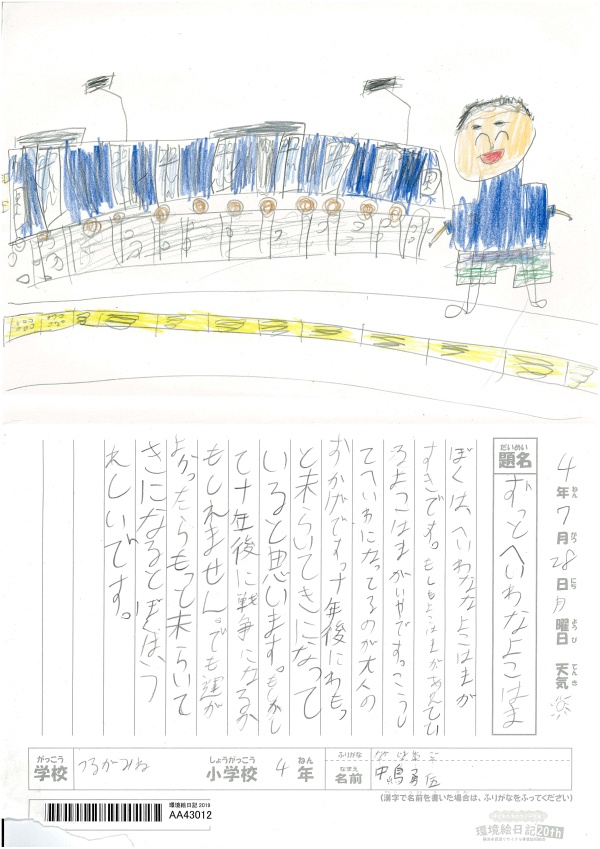 4年7月28日月曜日 天気
ねん
がつ
にち
ようび
てんき
だいめい
題名
ずっとへいわなよこはま
ぼくは、へいわなよこはまが
すきです。もしもよこはまが
るよこはまがいやです。こうし
てへいわになってるのが大人の
おかげです。十年後にわもっ
と未らいてきになって
いると思います。もしかし
て十年後に戦争になるか
もしれません。でも運が
よかったらもっと未らいて
きになるとぼくはう
れしいです。
がっこう
学校
つるがみね
しょうがっこう
小学校
4
ねん
年
ふりがな
なまえ
名前
中嶋勇
(漢字で名前を書いた場合は、ふりがなをふってください)
環境絵日記2019
AA43012
環境絵日記20th